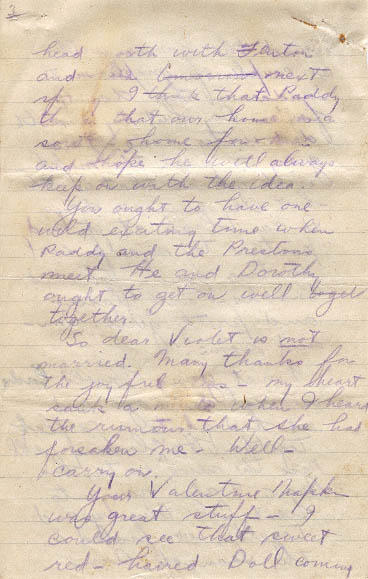 3
head north with Fenton
and next
I think that Paddy
that our home
sort home for
and I hope he will always
keep on with the idea.
You ought to have one
wild exciting time when
Paddy and the Prestons
meet. He and Dorothy
ought to get on well toget
together.
So dear Violet is not
married. Many thanks for
the joyful – my heart
sank a when I heard
the rumour that she had
forsaken me – Well –
carry on.
Your Valentine
was great stuff – I
could see that sweet
red-haired Doll coming